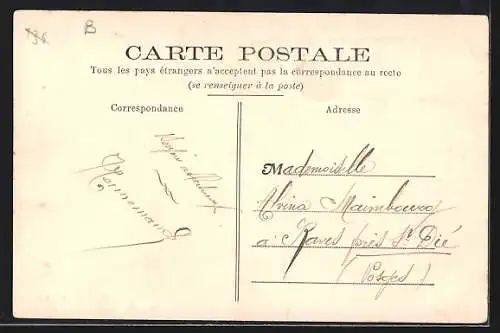 B
CARTE POSTALE
Tous les pays étrangers n'acceptent pas la correspondance au recto
(se renseigner à la poste)
Correspondance
Adresse
Mademoiselle
Maimbourg
à Raves près St Dié
(Vosges)